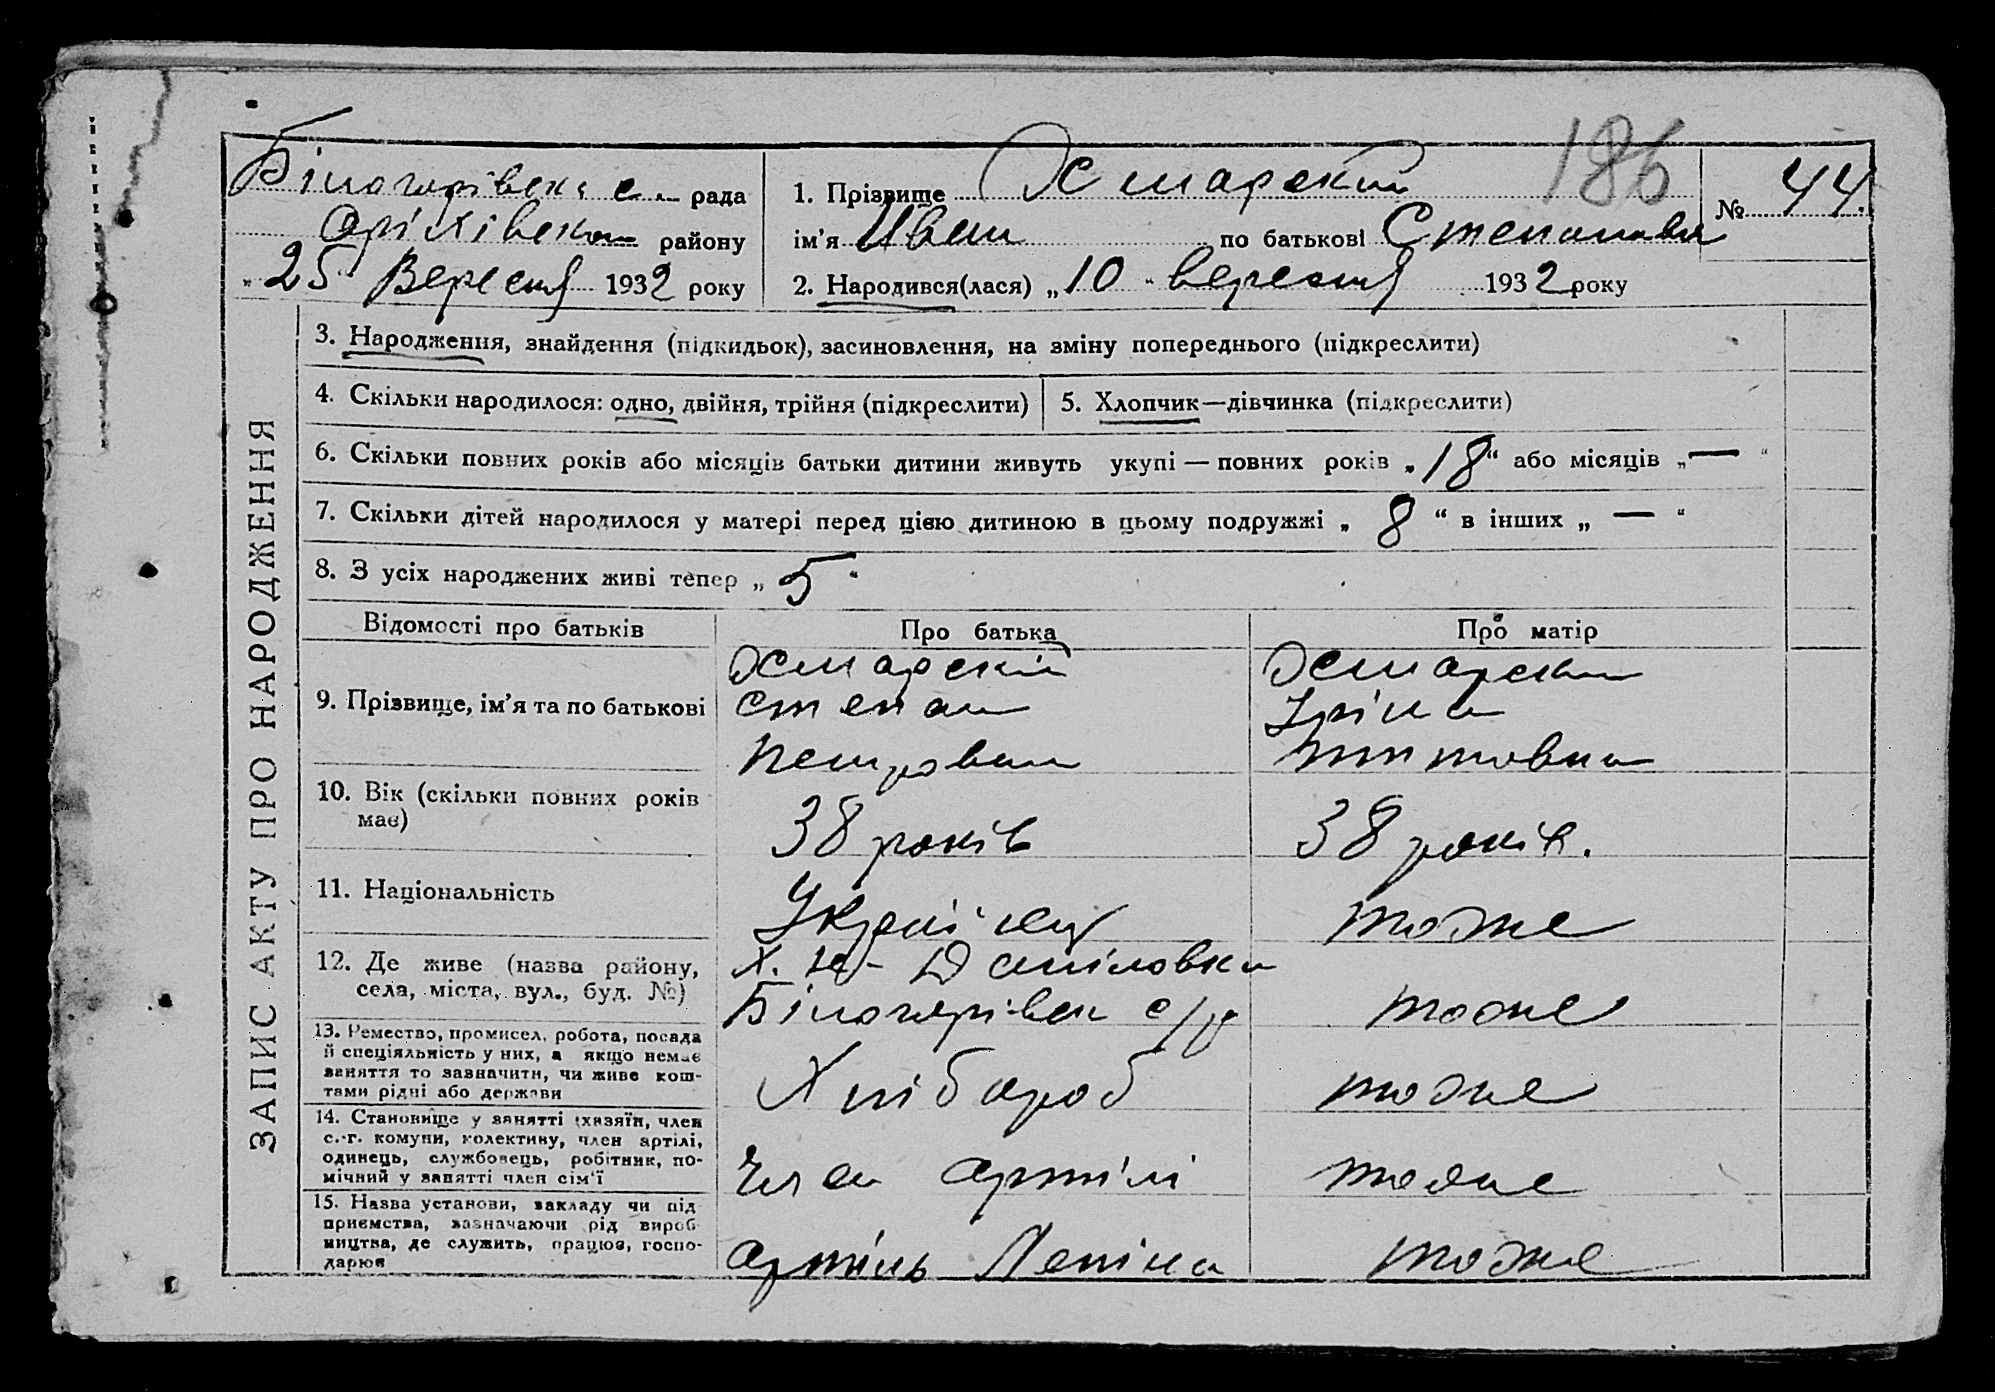 186
Білогорівськ с. рада
Оріхівськ району
„25 Вересня 1932 року
1. Прізвище Жмарский
ім’я Иван по батькові Степанов
2. Народився(лася) „10“ вересня 1932 року
№ 44.
ЗАПИС АКТУ ПРО НАРОДЖЕННЯ
3. Народження, знайдення (підкидьок), засиновлення, на зміну попереднього (підкреслити)
4. Скільки народилося: одно, двійня, трійня (підкреслити)
5. Хлопчик—дівчинка (підкреслити)
6. Скільки повних років або місяців батьки дитини живуть укупі — повних років „18“ або місяців „—“
7. Скільки дітей народилося у матері перед цією дитиною в цьому подружжі „8“ в інших „—“
8. З усіх народжених живі тепер „5“
Відомості про батьків
Про батька
Про матір
9. Прізвище, ім’я та по батькові
Степан
Петрован
Іріна
Титовна
10. Вік (скільки повних років
має)
38 років
38 років.
11. Національність
Українец
тоже
12. Де живе (назва району,
села, міста, вул., буд. №)
х. Н-Даніловка
Білогорівськ с/р
тоже
13. Ремество, промисел, робота, посада
й спеціяльність у них, а якщо немає
заняття то зазначити, чи живе кош-
тами рідні або держави
Хлібороб
тоже
14. Становище у занятті (хазяїн, член
с.-г. комуни, колективу, член артілі,
одинець, службовець, робітник, по-
мічний у занятті член сім’ї
Член артілі
тоже
15. Назва установи, закладу чи під
приємства, зазначаючи рід вироб
ництва, де служить, працює, госпо-
дарює
артіль Леніна
тоже